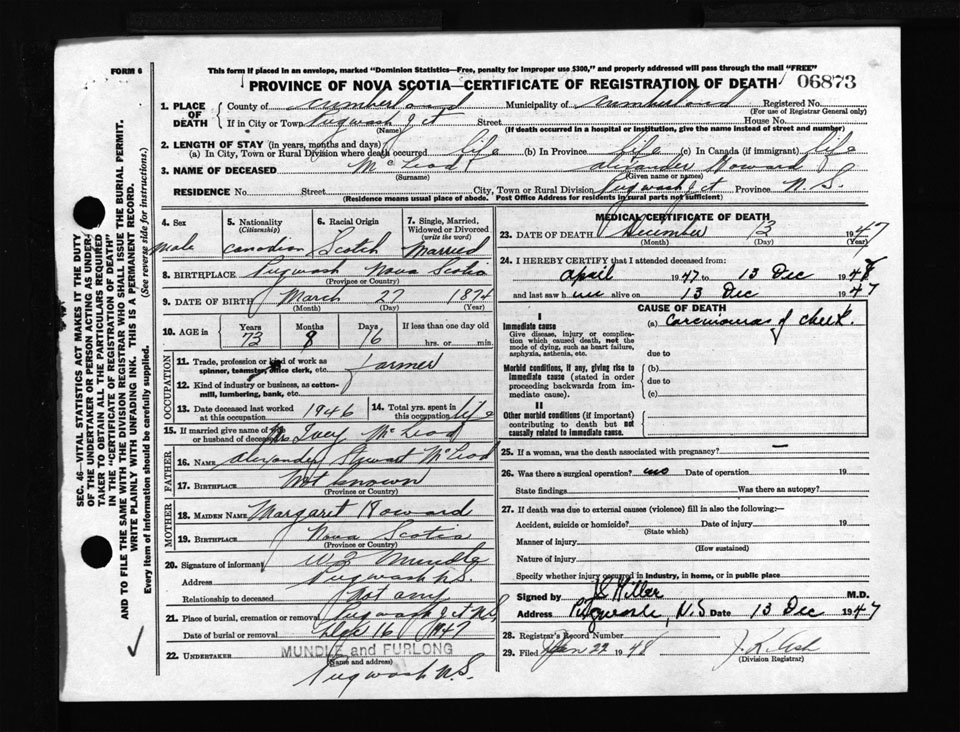 FORM 6
This form if placed in an envelope, marked "Dominion Statistics—Free, penalty for improper use $300," and properly addressed will pass through the mail "FREE"
PROVINCE OF NOVA SCOTIA—CERTIFICATE OF REGISTRATION OF DEATH 06873
1. PLACE OF DEATH County of Cumberland Municipality of Cumberland Registered No.
(For use of Registrar General only)
If in City or Town Pugwash Jct Street House No.
(Name) (If death occurred in a hospital or institution, give the name instead of street and number)
2. LENGTH OF STAY (in years, months and days)
(a) In City, Town or Rural Division where death occurred life (b) In Province life (c) In Canada (if immigrant) life
3. NAME OF DECEASED McLeod Alexander Howard
(Surname) (Given name or names)
RESIDENCE No. Street City, Town or Rural Division Pugwash Jct Province N.S.
(Residence means usual place of abode. Post Office Address for residents in rural parts not sufficient)
4. Sex Male
5. Nationality (Citizenship) Canadian
6. Racial Origin Scotch
7. Single, Married, Widowed or Divorced (write the word) Married
8. BIRTHPLACE Pugwash Nova Scotia
(Province or Country)
9. DATE OF BIRTH March 27 1874
(Month) (Day) (Year)
10. AGE in Years Months Days If less than one day old
73 8 16 hrs. or min.
OCCUPATION
11. Trade, profession or kind of work as spinner, teamster, office clerk, etc. Farmer
12. Kind of industry or business, as cotton-mill, lumbering, bank, etc.
13. Date deceased last worked at this occupation 1946
14. Total yrs. spent in this occupation life
15. If married give name of wife or husband of deceased Mrs McLeod
FATHER
16. NAME Alexander Stewart McLeod
17. BIRTHPLACE Not known
(Province or Country)
MOTHER
18. MAIDEN NAME Margaret Howard
19. BIRTHPLACE Nova Scotia
(Province or Country)
20. Signature of informant Mundle
Address Pugwash N.S.
Relationship to deceased Not any
21. Place of burial, cremation or removal Pugwash Jct N.S.
Date of burial or removal 16 1947
22. UNDERTAKER MUNDLE and FURLONG
(Name and address)
Pugwash N.S.
MEDICAL CERTIFICATE OF DEATH
23. DATE OF DEATH December 13 1947
(Month) (Day) (Year)
24. I HEREBY CERTIFY that I attended deceased from:
April 1947 to 13 Dec 194
and last saw h alive on 13 Dec 1947
CAUSE OF DEATH
I
Immediate cause (a) Carcinoma of cheek.
Give disease, injury or complication which caused death, not the mode of dying, such as heart failure, asphyxia, asthenia, etc.
due to
Morbid conditions, if any, giving rise to immediate cause (stated in order proceeding backwards from immediate cause)
(b)
due to
(c)
II
Other morbid conditions (if important) contributing to death but not causally related to immediate cause.
25. If a woman, was the death associated with pregnancy? —
26. Was there a surgical operation? no Date of operation 19
State findings Was there an autopsy?
27. If death was due to external causes (violence) fill in also the following:—
Accident, suicide or homicide? Date of injury 19
(State which)
Manner of injury
(How sustained)
Nature of injury
Specify whether injury occurred in industry, in home, or in public place
Signed by Miller M.D.
Address Pugwash, N.S Date 13 Dec 1947
28. Registrar's Record Number
29. Filed Jan 22 1948 J.R. Ash
(Division Registrar)
SEC. 46—VITAL STATISTICS ACT MAKES IT THE DUTY
OF THE UNDERTAKER OR PERSON ACTING AS UNDER-
TAKER TO OBTAIN ALL THE PARTICULARS REQUIRED
IN THE "CERTIFICATE OF REGISTRATION OF DEATH"
AND TO FILE THE SAME WITH THE DIVISION REGISTRAR WHO SHALL ISSUE THE BURIAL PERMIT.
WRITE PLAINLY WITH UNFADING INK. THIS IS A PERMANENT RECORD.
Every item of information should be carefully supplied. (See reverse side for instructions.)